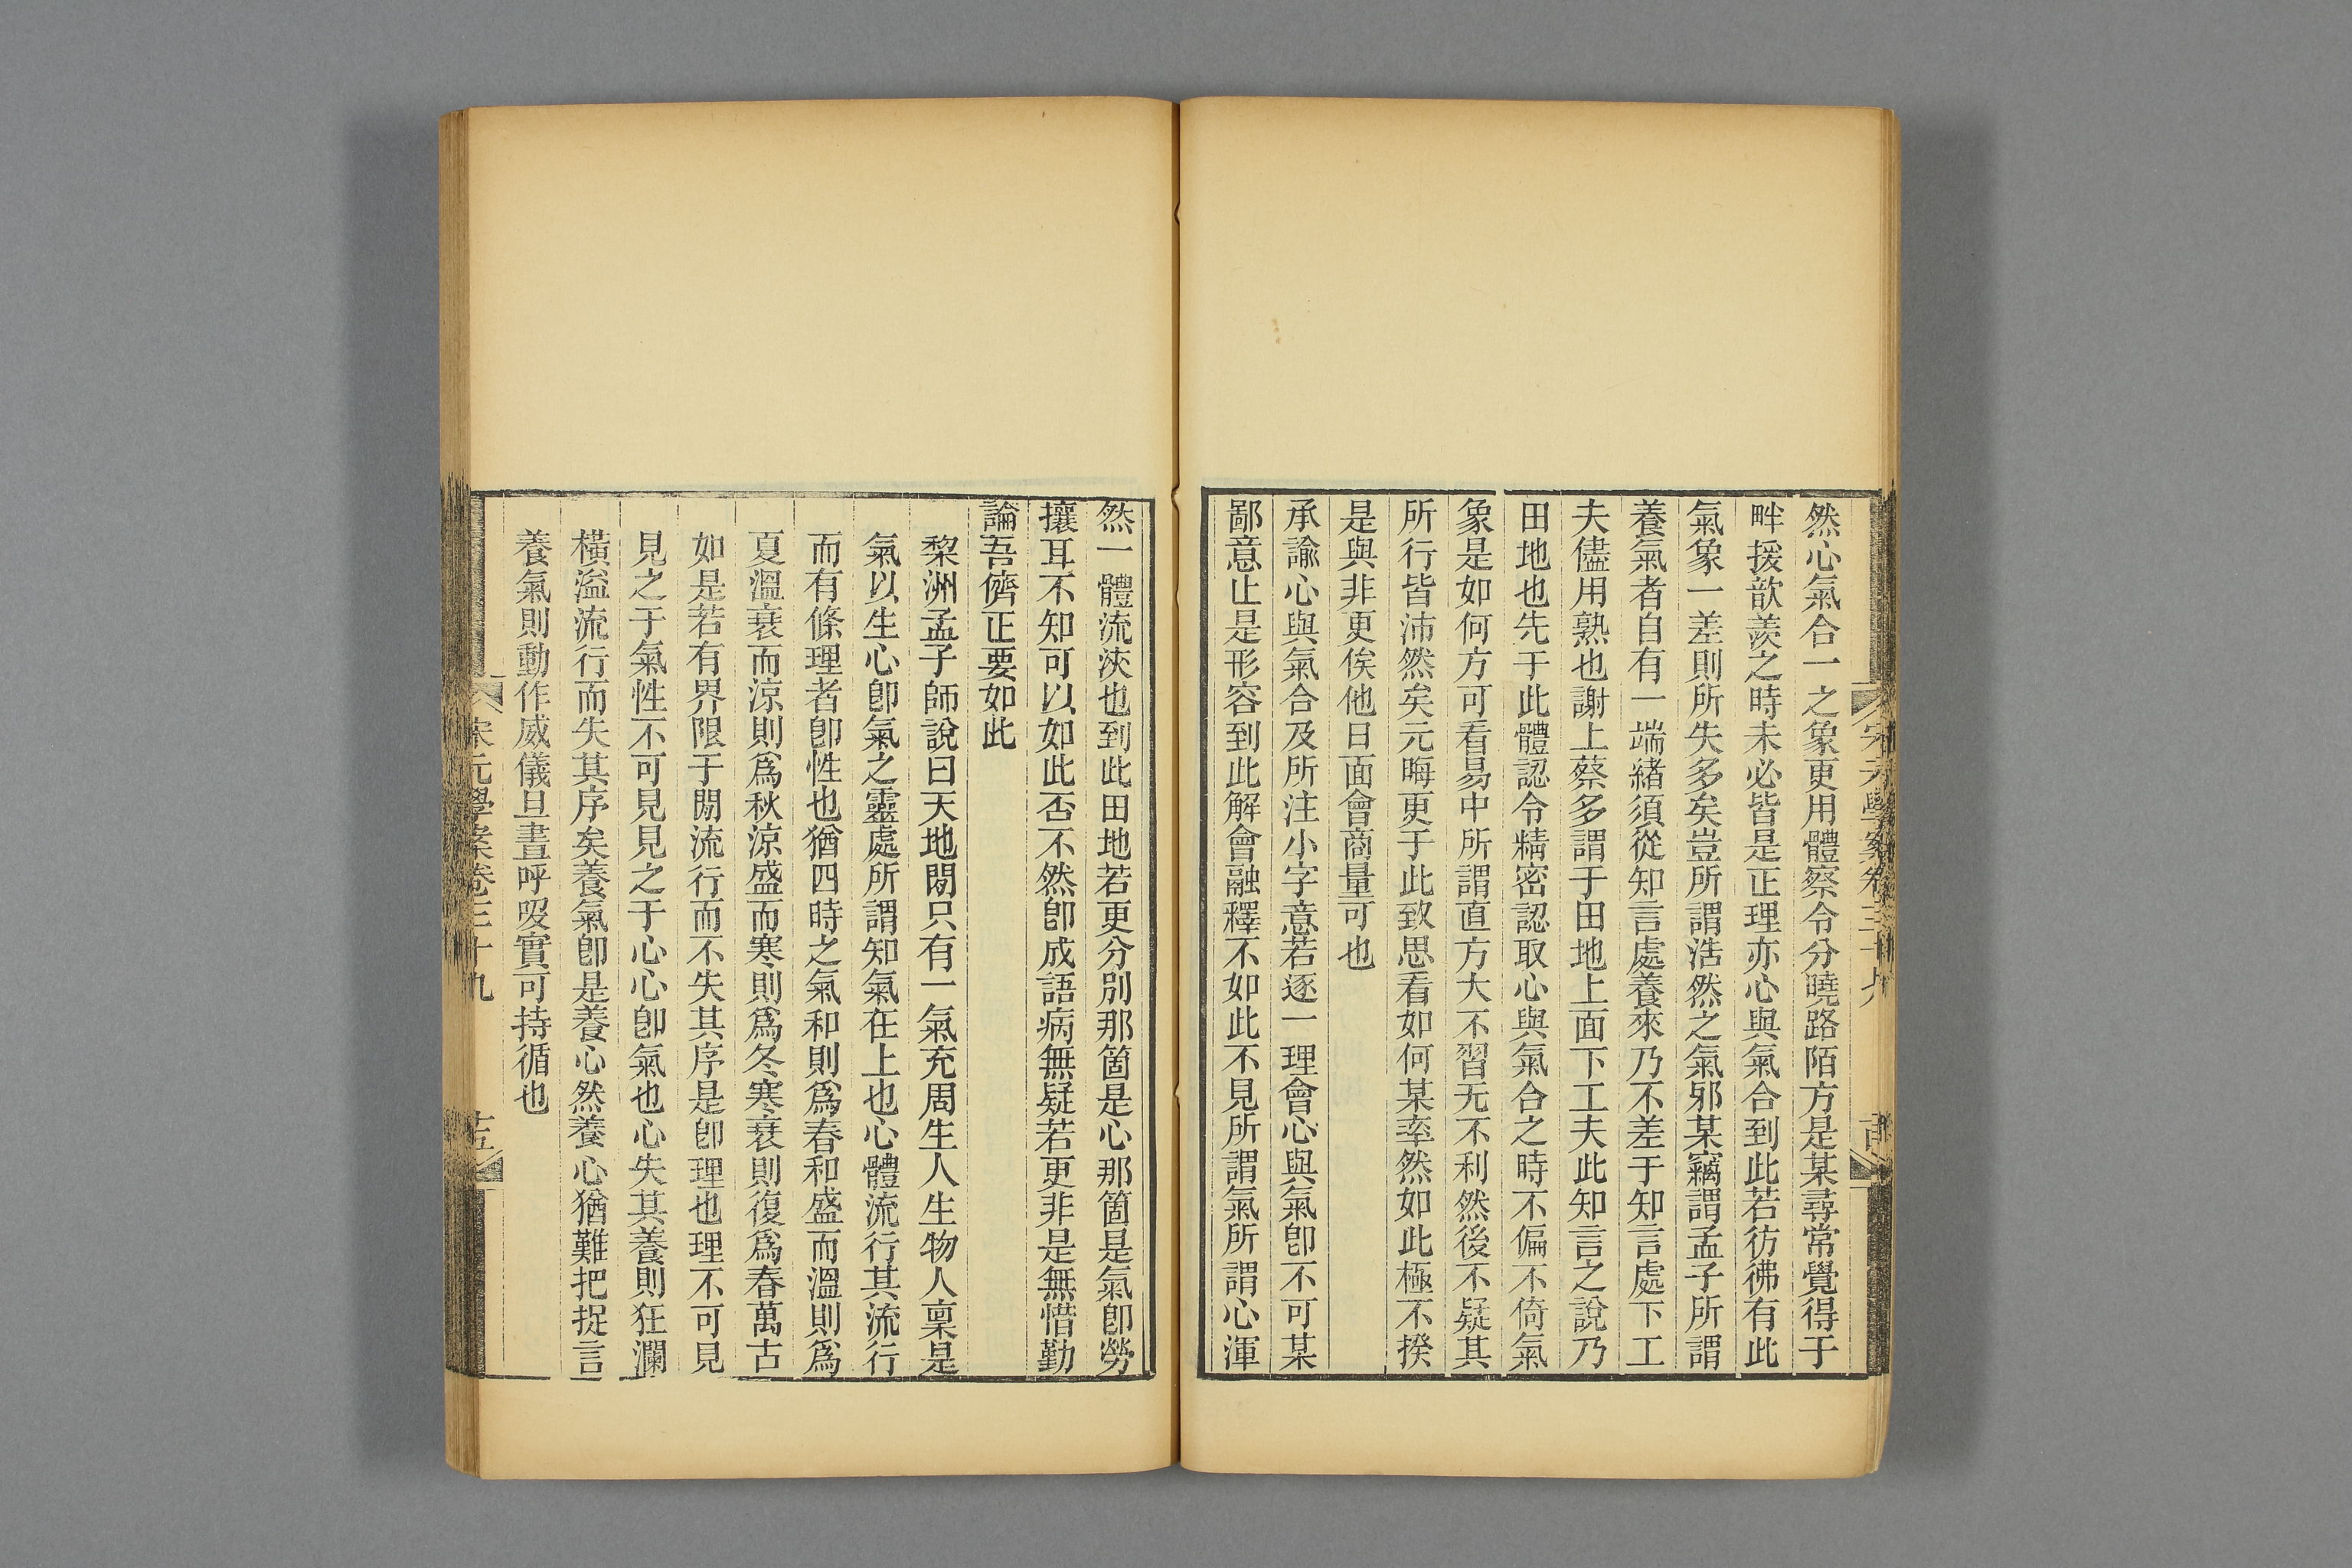 然心氣合一之象更用體察令分曉路陌方是某尋常覺得于
畔援歆羨之時未必皆是正理亦心與氣合到此若彷彿有此
氣象一差則所失多矣豈所謂浩然之氣邪某竊謂孟子所謂
養氣者自有一端緒須從知言處養來乃不差于知言處下工
夫儘用熟也謝上蔡多謂于田地上面下工夫此知言之說乃
田地也先于此體認令精密認取心與氣合之時不偏不倚氣
象是如何方可看易中所謂直方大不習无不利然後不疑其
所行皆沛然矣元晦更于此致思看如何某率然如此極不揆
是與非更俟他日面會商量可也
承諭心與氣合及所注小字意若逐一理會心與氣卽不可某
鄙意止是形容到此解會融釋不如此不見所謂氣所謂心渾
然一體流浹也到此田地若更分別那箇是心那箇是氣卽勞
攘耳不知可以如此否不然卽成語病無疑若更非是無惜勤
論吾儕正要如此
黎洲孟子師說曰天地閒只有一氣充周生人生物人稟是
氣以生心卽氣之靈處所謂知氣在上也心體流行其流行
而有條理者卽性也猶四時之氣和則爲春和盛而溫則爲
夏溫衰而涼則爲秋涼盛而寒則爲冬寒衰則復爲春萬古
如是若有界限于閒流行而不失其序是卽理也理不可見
見之于氣性不可見見之于心心卽氣也心失其養則狂瀾
橫溢流行而失其序矣養氣卽是養心然養心猶難把捉言
養氣則動作威儀旦晝呼吸實可持循也
宋元學案卷三十九
十五